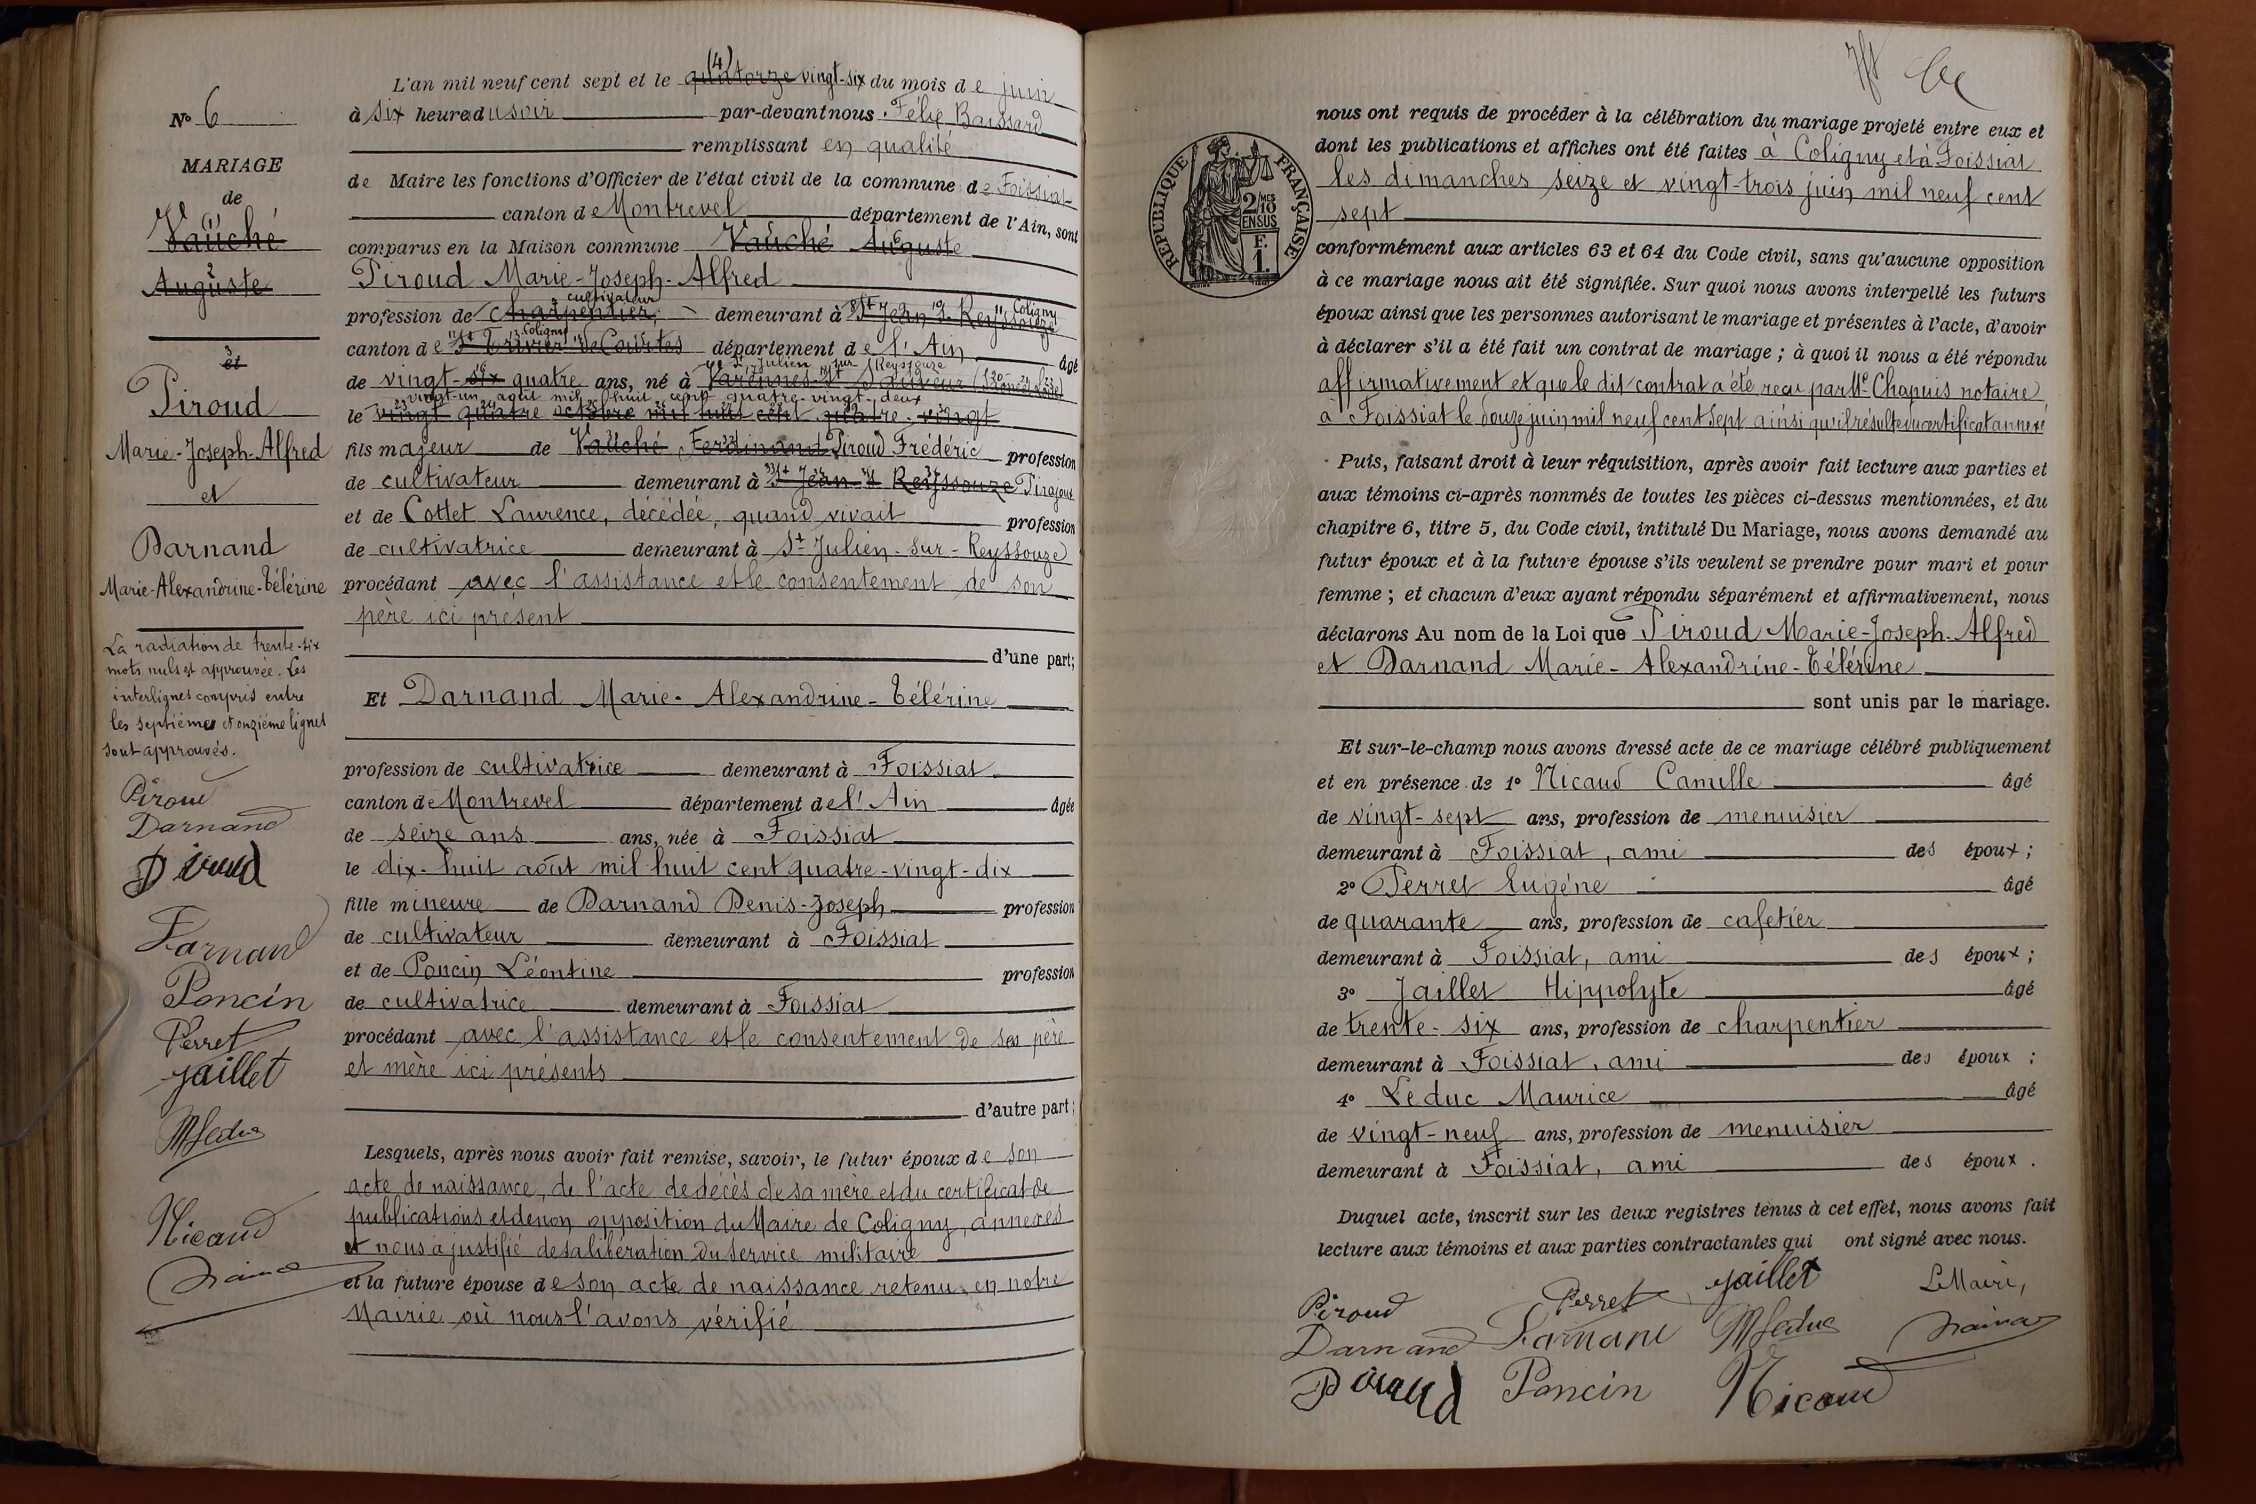 N° 6
MARIAGE
de
(1)
Vaüché
2
Auguste
3
et
Piroud
Marie-Joseph-Alfred
et
Darnand
Marie-Alexandrine-Célérine
La radiation de trente-six
mots nuls est approuvée. Les
interlignes compris entre
les septième et onzième lignes
sont approuvés.
Piroud
Darnand
Piroud
Darnand
Poncin
Perret
Jaillet
MLeduc
Nicaud
(4)
L'an mil neuf cent sept et le quatorze vingt-six du mois de juin
à six heure du soir par-devant nous Félix
remplissant en qualité
de Maire les fonctions d'Officier de l'état civil de la commune de Foissiat
canton de Montrevel département de l'Ain, sont
comparus en la Maison commune Vaüché Auguste
Piroud Marie-Joseph-Alfred
cultivateur
Coligny
profession de charpentier, demeurant à St Jean s. Reyssouze
Coligny
canton de St Trivier de Courtes département de l'Ain âgé
St Julien sur Reyssouze
de vingt-six quatre ans, né à Varennes-St Sauveur
vingt-un août mil huit cent quatre-vingt-deux
le vingt quatre octobre mil huit cent quatre-vingt
fils majeur de Vaüché Ferdinand Piroud Frédéric profession
de cultivateur demeurant à St Jean s. Reyssouze Pirajoux
et de Cottet Laurence, décédée, quand vivait profession
de cultivatrice demeurant à St Julien-sur-Reyssouze
procédant avec l'assistance et le consentement de son
père ici présent
d'une part;
Et Darnand Marie-Alexandrine-Célérine
profession de cultivatrice demeurant à Foissiat
canton de Montrevel département de l'Ain âgée
de seize ans ans, née à Foissiat
le dix-huit août mil huit cent quatre-vingt-dix
fille mineure de Darnand Denis-Joseph profession
de cultivateur demeurant à Foissiat
et de Poncin Léontine profession
de cultivatrice demeurant à Foissiat
procédant avec l'assistance et le consentement de ses père
et mère ici présents
d'autre part;
Lesquels, après nous avoir fait remise, savoir, le futur époux de son
acte de naissance, de l'acte de décès de sa mère et du certificat de
publications et de non opposition du Maire de Coligny, annexés
et nous a justifié de sa libération du service militaire
et la future épouse de son acte de naissance retenu en notre
Mairie où nous l'avons vérifié
REPUBLIQUE FRANÇAISE
2/10 MES
EN SUS
F.
1.
nous ont requis de procéder à la célébration du mariage projeté entre eux et
dont les publications et affiches ont été faites à Coligny et à Foissiat
les dimanches seize et vingt-trois juin mil neuf cent
sept
conformément aux articles 63 et 64 du Code civil, sans qu'aucune opposition
à ce mariage nous ait été signifiée. Sur quoi nous avons interpellé les futurs
époux ainsi que les personnes autorisant le mariage et présentes à l'acte, d'avoir
à déclarer s'il a été fait un contrat de mariage ; à quoi il nous a été répondu
affirmativement et que le dit contrat a été reçu par Me Chapuis notaire
à Foissiat le douze juin mil neuf cent sept ainsi qu'il résulte du certificat annexé
Puis, faisant droit à leur réquisition, après avoir fait lecture aux parties et
aux témoins ci-après nommés de toutes les pièces ci-dessus mentionnées, et du
chapitre 6, titre 5, du Code civil, intitulé Du Mariage, nous avons demandé au
futur époux et à la future épouse s'ils veulent se prendre pour mari et pour
femme ; et chacun d'eux ayant répondu séparément et affirmativement, nous
déclarons Au nom de la Loi que Piroud Marie-Joseph-Alfred
et Darnand Marie-Alexandrine-Célérine
sont unis par le mariage.
Et sur-le-champ nous avons dressé acte de ce mariage célébré publiquement
et en présence de 1° Nicaud Camille âgé
de vingt-sept ans, profession de menuisier
demeurant à Foissiat, ami des époux ;
2° Perret Eugène âgé
de quarante ans, profession de cafetier
demeurant à Foissiat, ami des époux ;
3° Jaillet Hippolyte âgé
de trente-six ans, profession de charpentier
demeurant à Foissiat, ami des époux ;
4° Leduc Maurice âgé
de vingt-neuf ans, profession de menuisier
demeurant à Foissiat, ami des époux.
Duquel acte, inscrit sur les deux registres tenus à cet effet, nous avons fait
lecture aux témoins et aux parties contractantes qui ont signé avec nous.
Piroud Perret Jaillet Le Maire,
Darnand Darnand MLeduc
Piroud Poncin Nicaud